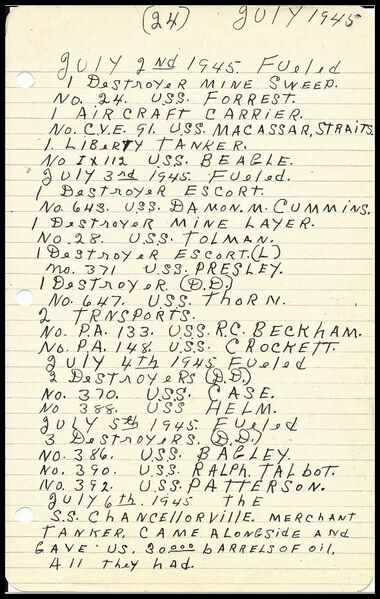 (24) JULY 1945
JULY 2nd 1945. Fueled
1 Destroyer Mine Sweep.
No. 24. USS. FORREST.
1 AIRCRAFT CARRIER.
No. C.V.E. 91. USS. MACASSAR, STRAITS.
1 LIBERTY TANKER.
No IX112 USS. BEAGLE.
JULY 3rd 1945 Fueled.
1 Destroyer Escort.
No. 643. USS. DAMON. M. CUMMINS.
1 Destroyer Mine Layer.
No. 28. USS. TOLMAN.
1 Destroyer Escort. (L)
No. 371 USS. PRESLEY.
1 Destroyer (D.D.)
No. 647. USS. THORN.
2 TRNSPORTS.
No. P.A. 133. USS. R.C. BECKHAM.
No. P.A. 148. USS. CROCKETT.
JULY 4th 1945 Fueled
2 Destroyers (D.D.)
No. 370. USS. CASE.
No 388. USS HELM.
JULY 5th 1945. Fueled
3 Destroyers. (D.D.)
No. 386. USS. BAGLEY.
No. 390. USS. RALPH. TALBOT.
No. 392. USS. PATTERSON.
JULY 6th. 1945 The
S.S. CHANCELLORVILLE. MERCHANT
TANKER. CAME ALONGSIDE AND
GAVE US. 30000 BARRELS OF OIL.
All They Had.